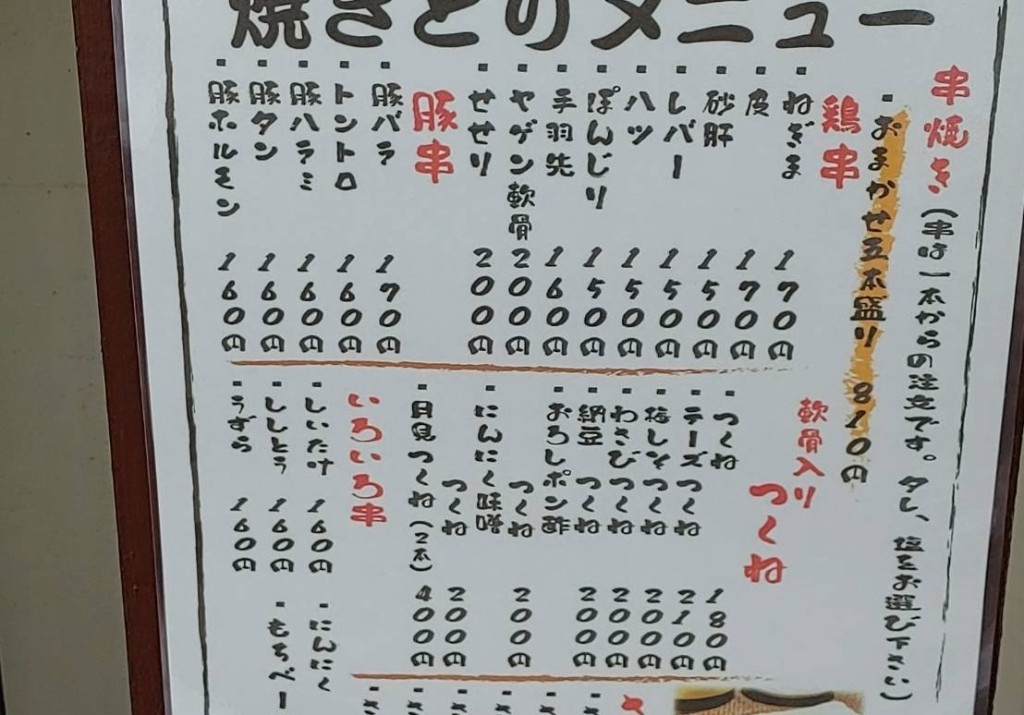 焼きとりメニュー
串焼き（串は一本からの注文です。タレ、塩をお選び下さい）
・おまかせ五本盛り 810円
鶏串
・ねぎま 170円
・皮 170円
・砂肝 150円
・レバー 150円
・ハツ 150円
・ぽんじり 150円
・手羽先 160円
・ヤゲン軟骨 200円
・せせり 200円
豚串
・豚バラ 170円
・トントロ 160円
・豚ハラミ 160円
・豚タン 160円
・豚ホルモン 160円
軟骨入り つくね
・つくね 180円
・チーズつくね 210円
・梅しそつくね 200円
・わさびつくね 200円
・納豆つくね 200円
・おろしポン酢つくね 200円
・にんにく味噌つくね 200円
・月見つくね（2本） 400円
いろいろ串
・しいたけ 160円
・ししとう 160円
・うずら 160円
・にんにく
・もちベー